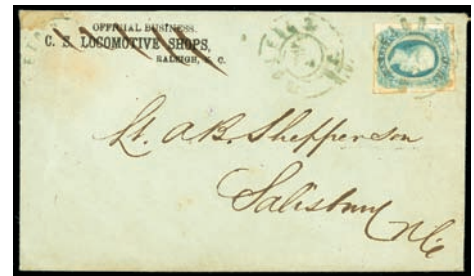 OFFICIAL BUSINESS.
C. S. LOCOMOTIVE SHOPS,
RALEIGH, N. C.
Lt. A.B. Shepperson
Salisbury
N.C.